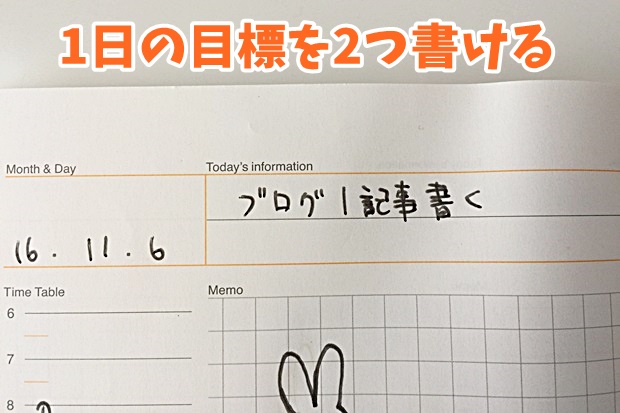 1日の目標を2つ書ける
Month & Day
Today's information
ブログ1記事書く
16. 11. 6
Time Table
Memo
6
7
8